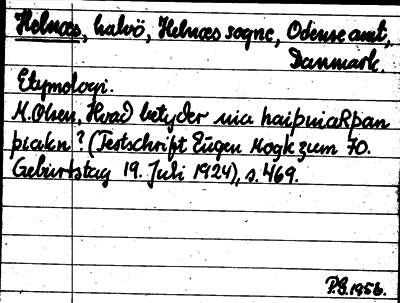 Helnæs, halvö, Helnæs sogne, Odense amt,
Danmark.
Etymologi.
M. Olsen, Hvad betyder uia haiþuiaRþan
þiakn? (Festschrift Eugen Mogk zum 70.
Geburtstag 19. Juli 1924), s. 469.
P.S. 1956.